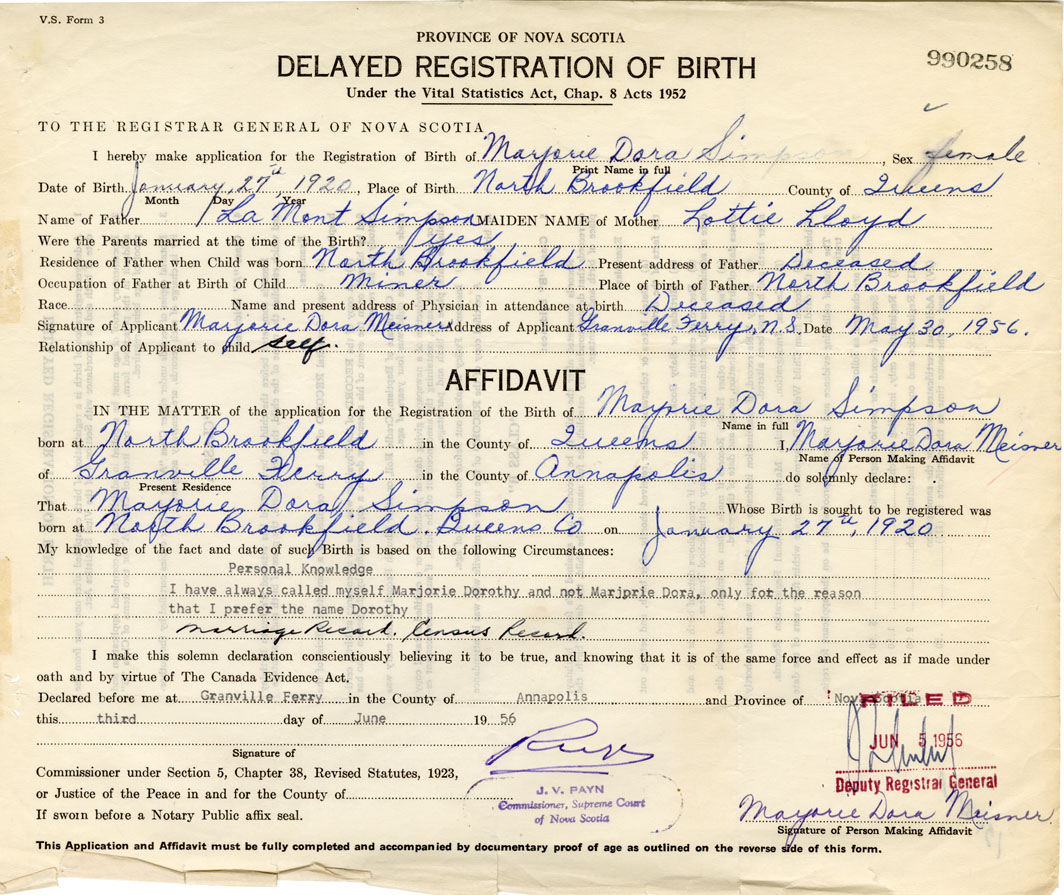 V.S. Form 3
PROVINCE OF NOVA SCOTIA
DELAYED REGISTRATION OF BIRTH
990258
Under the Vital Statistics Act, Chap. 8 Acts 1952
TO THE REGISTRAR GENERAL OF NOVA SCOTIA
I hereby make application for the Registration of Birth of Marjorie Dora Simpson, Sex female
Print Name in full
Date of Birth January 27th, 1920, Place of Birth North Brookfield County of Queens
Month Day Year
Name of Father La Mont Simpson MAIDEN NAME of Mother Lottie Lloyd
Were the Parents married at the time of the Birth? yes
Residence of Father when Child was born North Brookfield Present address of Father Deceased
Occupation of Father at Birth of Child Miner Place of birth of Father North Brookfield
Race Name and present address of Physician in attendance at birth Deceased
Signature of Applicant Marjorie Dora Meisner Address of Applicant Granville Ferry, N.S. Date May 30, 1956.
Relationship of Applicant to child self.
AFFIDAVIT
IN THE MATTER of the application for the Registration of the Birth of Marjorie Dora Simpson
Name in full
born at North Brookfield in the County of Queens I, Marjorie Dora Meisner
Name of Person Making Affidavit
of Granville Ferry in the County of Annapolis do solemnly declare:
Present Residence
That Marjorie Dora Simpson Whose Birth is sought to be registered was
born at North Brookfield. Queens Co on January 27th, 1920
My knowledge of the fact and date of such Birth is based on the following Circumstances:
Personal Knowledge
I have always called myself Marjorie Dorothy and not Marjprie Dora, only fot the reason
that I prefer the name Dorothy
Marriage Record. Census Record.
I make this solemn declaration conscientiously believing it to be true, and knowing that it is of the same force and effect as if made under
oath and by virtue of The Canada Evidence Act.
Declared before me at Granville Ferry in the County of Annapolis and Province of Nova Scotia
FILED
this third day of June 1956
JUN 5 1956
Signature of
Commissioner under Section 5, Chapter 38, Revised Statutes, 1923,
Deputy Registrar General
or Justice of the Peace in and for the County of
J. V. PAYN
Commissioner, Supreme Court
of Nova Scotia
If sworn before a Notary Public affix seal.
Marjorie Dora Meisner
Signature of Person Making Affidavit
This Application and Affidavit must be fully completed and accompanied by documentary proof of age as outlined on the reverse side of this form.